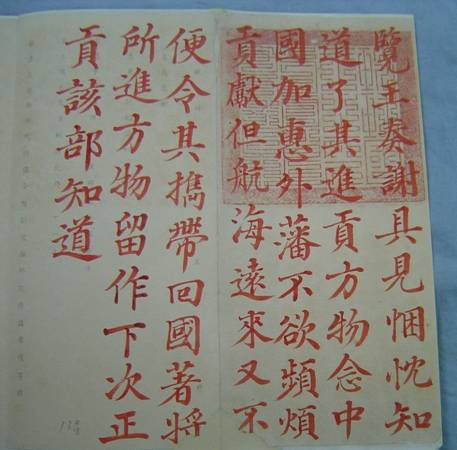 覽王奏謝具見悃忱知
道了其進貢方物念中
國加惠外藩不欲頻煩
貢獻但航海遠來又不
便令其攜帶回國著將
所進方物留作下次正
貢該部知道